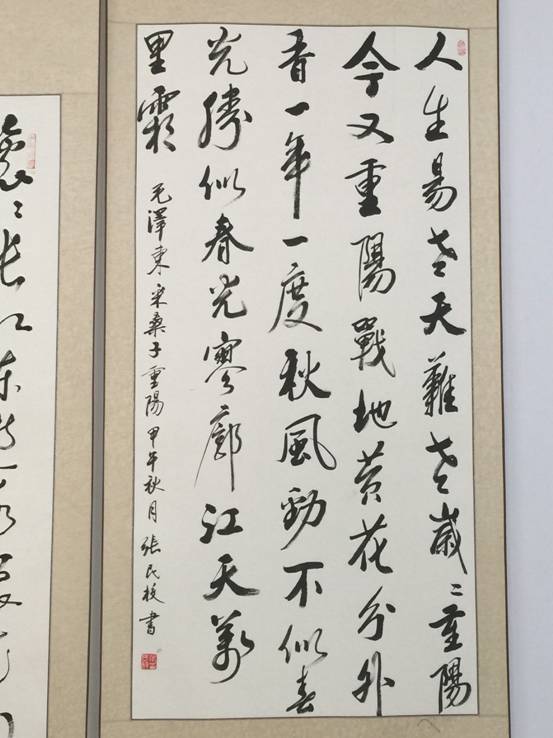 人生易老天難老歲〻重陽
今又重陽戰地黃花分外
香一年一度秋風勁不似春
光勝似春光寥廓江天萬
里霜
毛澤東采桑子重陽甲午秋月張民書
滾〻長江東逝